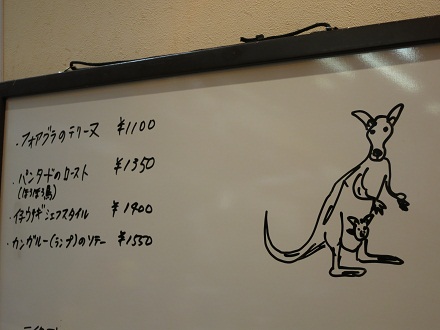 ・フォアグラのテリーヌ ¥1100
・パンタードのロースト ¥1350
(ほろほろ鳥)
・イチウサギシェフスタイル ¥1400
・カンガルー(ランプ)のソテー ¥1550